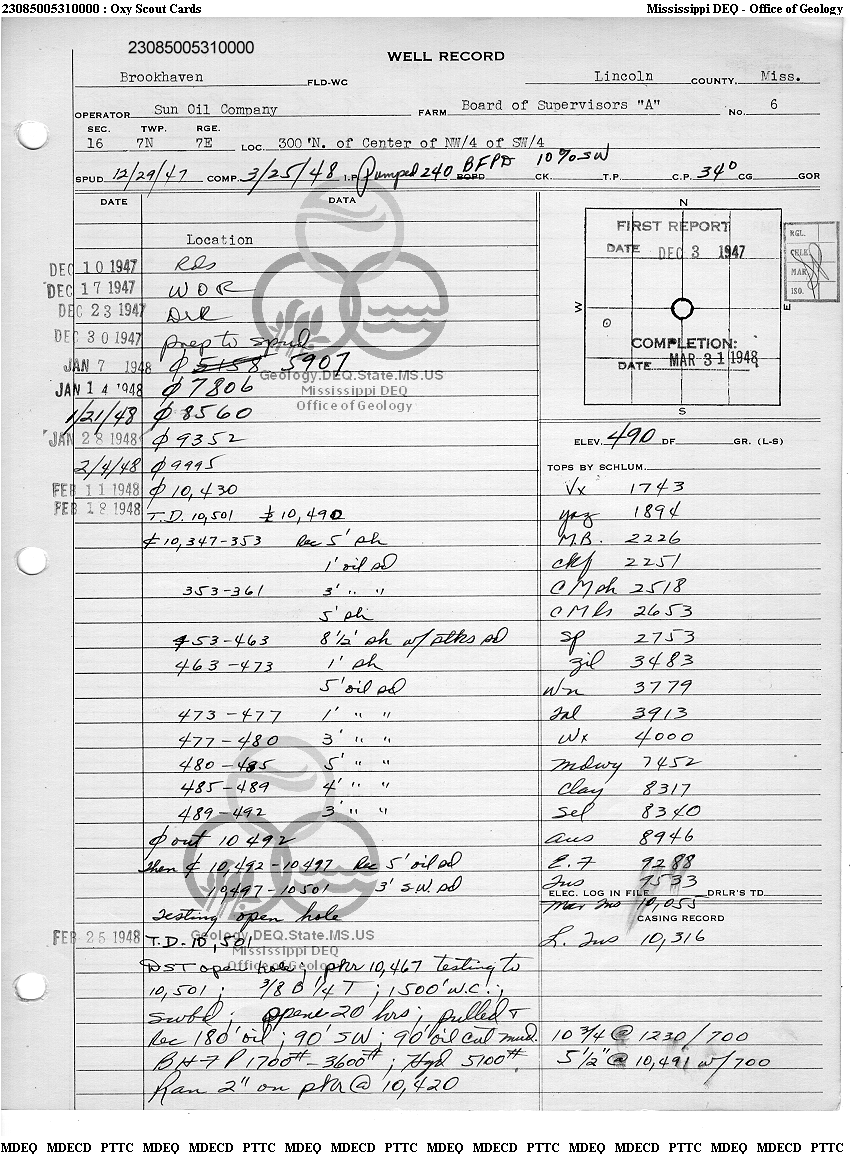 23085005310000 : Oxy Scout Cards Mississippi DEQ - Office of Geology
23085005310000
WELL RECORD
Brookhaven FLD-WC Lincoln COUNTY, Miss.
OPERATOR Sun Oil Company FARM Board of Supervisors "A" No. 6
SEC. TWP. RGE.
16 7N 7E LOC. 300'N. of Center of NW/4 of SW/4
SPUD 12/29/47 COMP. 3/25/48 I.P. Pumped 240 BFPD BOPD 10% SW CK. T.P. C.P. 34° CG GOR
DATE DATA
Location
DEC 10 1947 Rds
DEC 17 1947 WOR
DEC 23 1947 DrR
DEC 30 1947 prep to spud
JAN 7 1948 ϕ 5158 5907
JAN 14 1948 ϕ 7806
1/21/48 ϕ 8560
JAN 28 1948 ϕ 9352
2/4/48 ϕ 9995
FEB 11 1948 ϕ 10,430
FEB 18 1948 T.D. 10,501 10,490
10,347-353 Rec 5' sh
1' oil sd
353-361 3' " "
5' sh
453-463 8 1/2' sh w/ stks sd
463-473 1' sh
5' oil sd
473-477 1' " "
477-480 3' " "
480-485 5' " "
485-489 4' " "
489-492 3' " "
ϕ out 10492
then 10,492-10,497 Rec 5' oil sd
10497-10501 3' S.W. sd
Testing open hole
FEB 25 1948 T.D. 10,501
DST open hole; pkr 10,467 testing to
10,501; 3/8 B 1/4 T; 1500' W.C.;
swbd; open 20 hrs; pulled &
Rec 180' oil; 90' SW; 90' oil cut mud.
BHFP 1700# - 3600#; Hyd 5100#
Ran 2" on pkr @ 10,420
N
FIRST REPORT
DATE DEC 3 1947
W
E
COMPLETION:
MAR 31 1948
DATE
S
RGL.
CHLK.
MAR.
ISO.
ELEV. 490 DF GR. (L-S)
TOPS BY SCHLUM.
Vx 1743
yaz 1894
M.B. 2226
ckf 2251
CMsh 2518
CMls 2653
Sp 2753
zil 3483
Wn 3779
Tal 3913
Wx 4000
mdwy 7452
Clay 8317
Sel 8340
aus 8946
E.F 9288
Tus 9533
ELEC. LOG IN FILE DRLR'S TD
Mar Tus 10,055
CASING RECORD
L. Tus 10,316
10 3/4 @ 1230/700
5 1/2" @ 10,491 w/700
Geology.DEQ.State.MS.US
Mississippi DEQ
Office of Geology
Geology.DEQ.State.MS.US
Mississippi DEQ
Office of Geology
MDEQ MDECD PTTC MDEQ MDECD PTTC MDEQ MDECD PTTC MDEQ MDECD PTTC MDEQ MDECD PTTC MDEQ MDECD PTTC